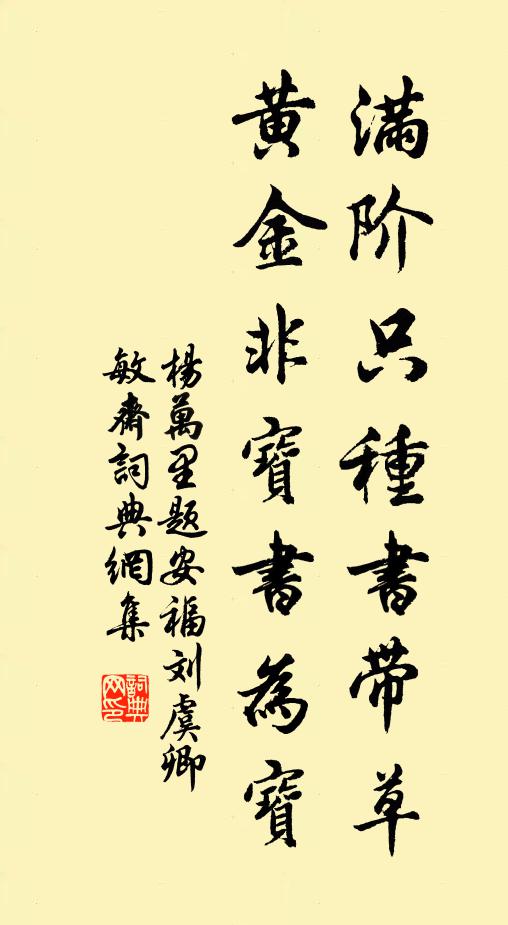 滿阶只種書帶草
黄金非寶書為寶
楊萬里题安福刘虞卿
敏齋詞典網集
詞典网印